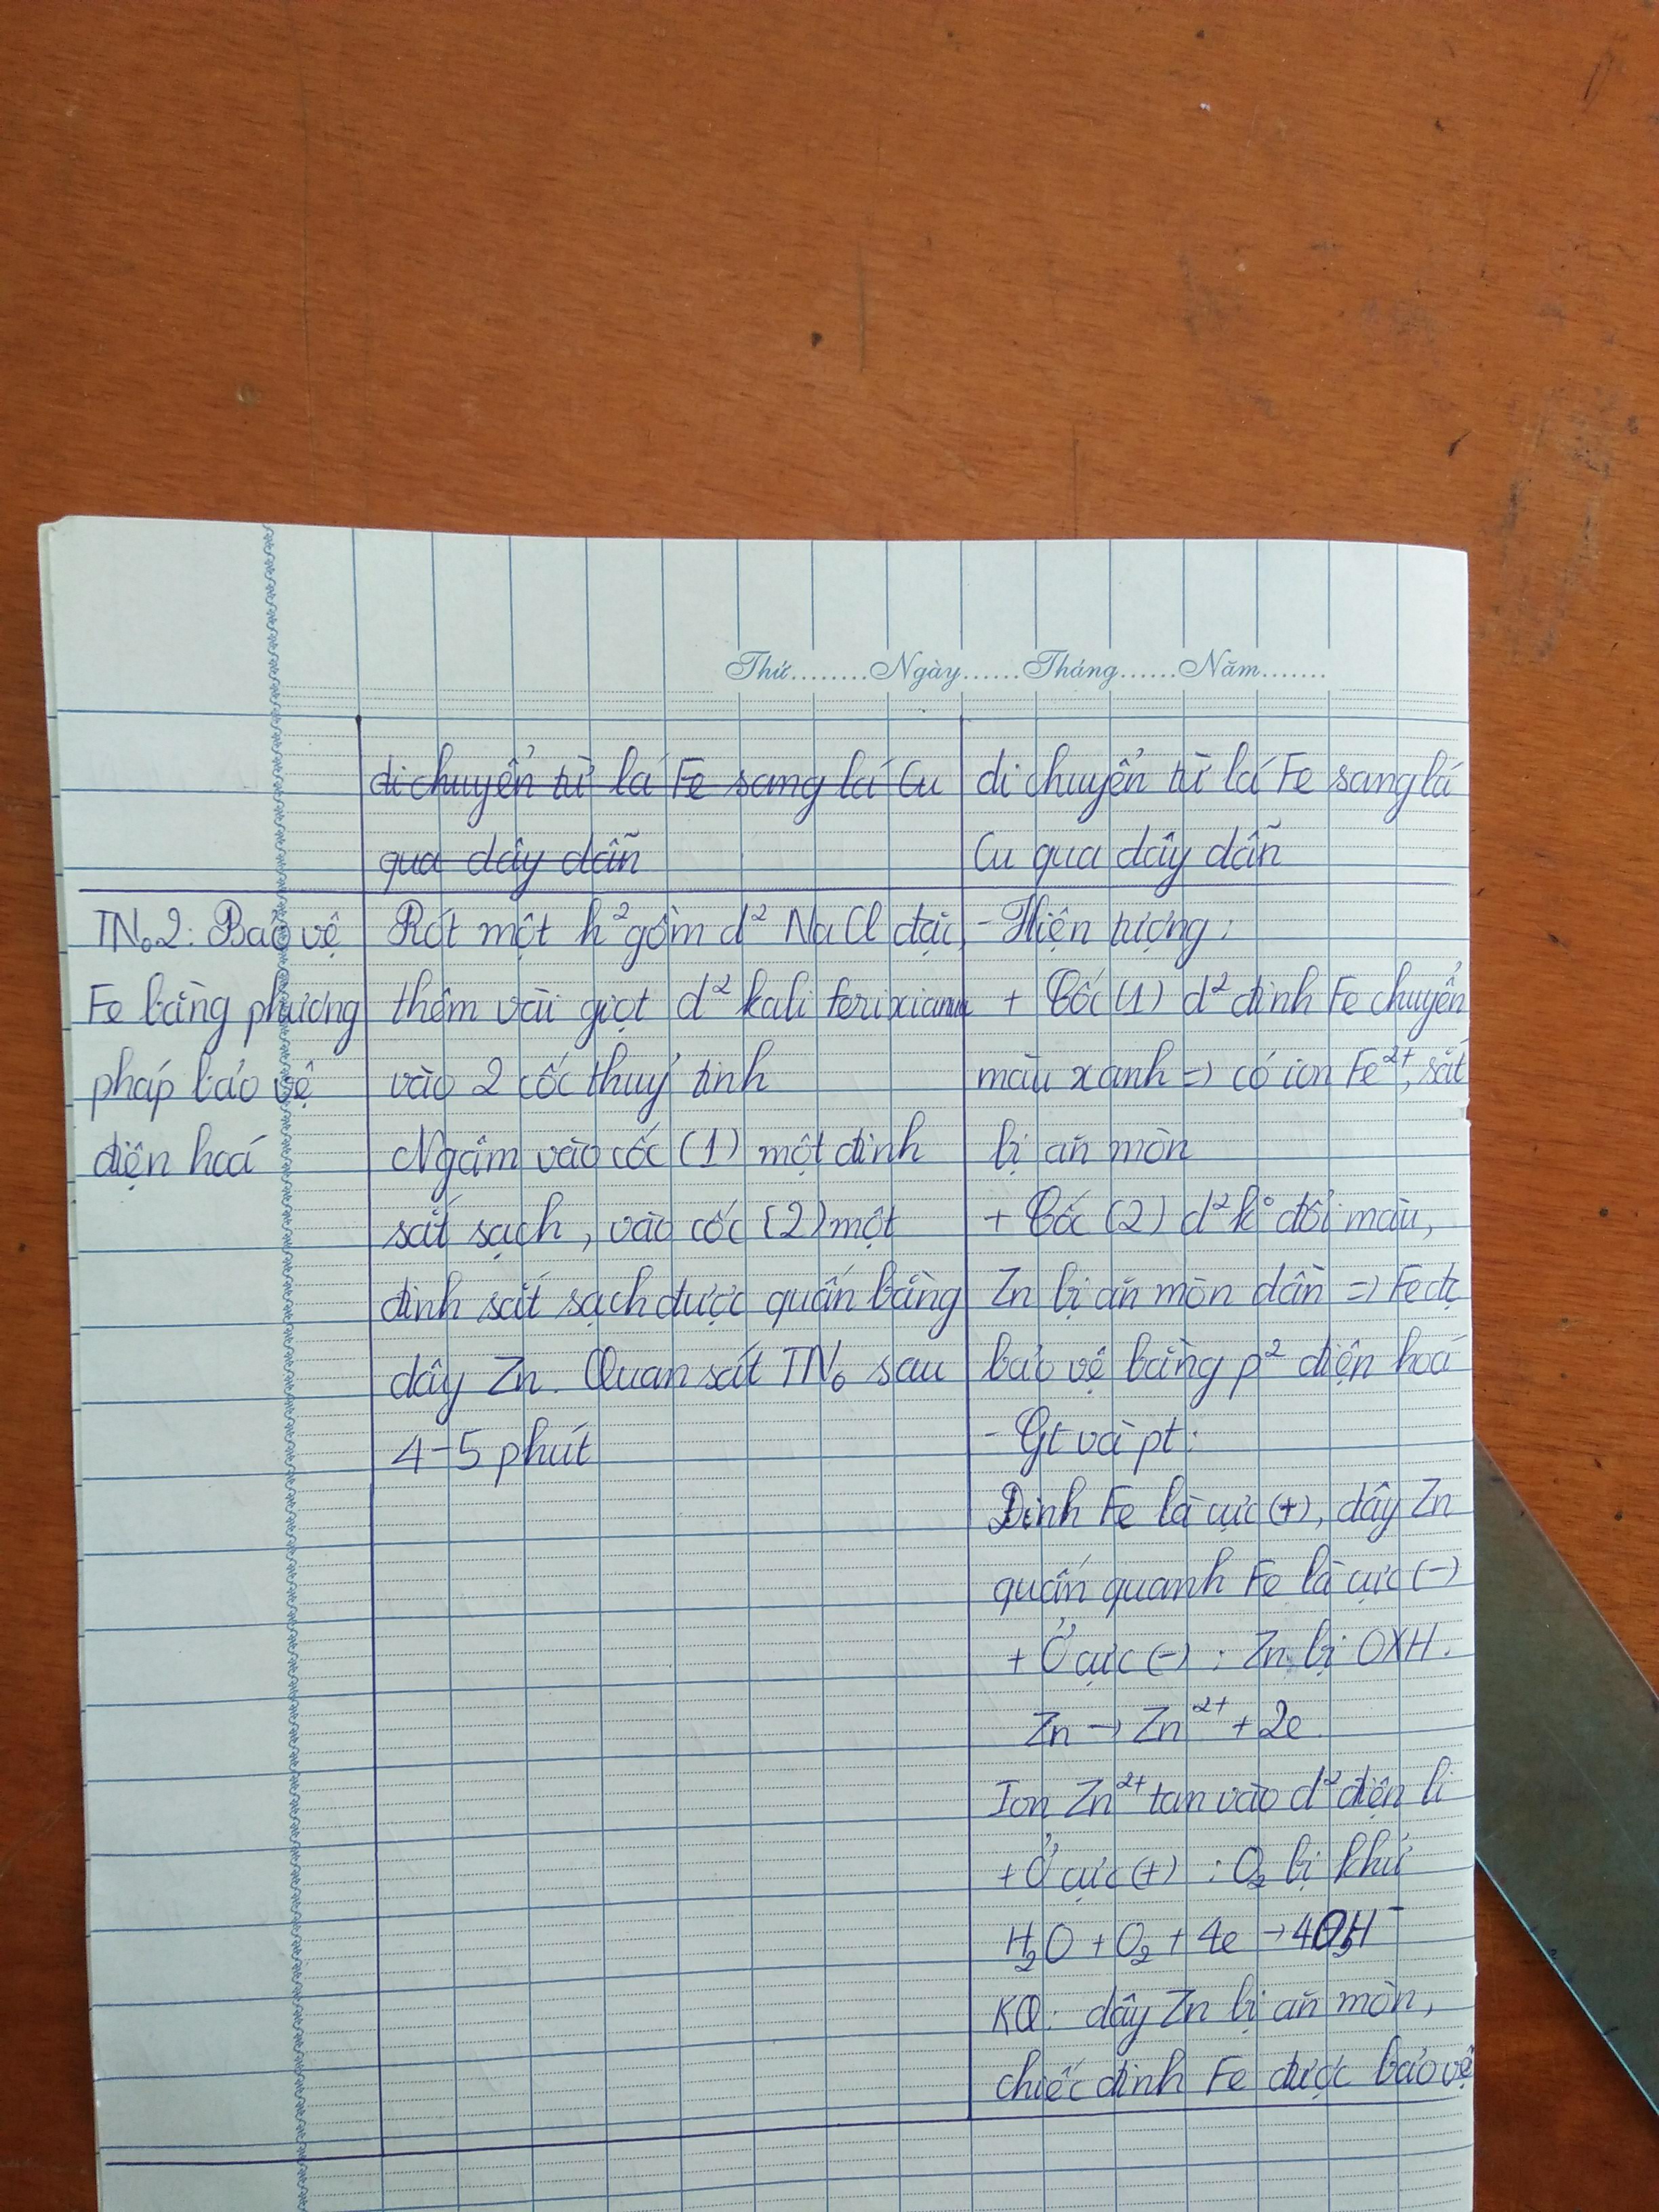 Thứ........Ngày......Tháng......Năm.......
di chuyển từ lá Fe sang lá Cu
qua dây dẫn
di chuyển từ lá Fe sang lá
Cu qua dây dẫn
TNo2: Bảo vệ
Fe bằng phương
pháp bảo vệ
điện hoá
Rót một h² gồm d² NaCl đặc,
thêm vài giọt d² kali ferixianua
vào 2 cốc thuỷ tinh
Ngâm vào cốc (1) một đinh
sắt sạch, vào cốc (2) một
đinh sắt sạch được quấn bằng
dây Zn. Quan sát TNo sau
4-5 phút
- Hiện tượng:
+ Cốc (1) d² đinh Fe chuyển
màu xanh => có ion Fe²⁺, sắt
bị ăn mòn
+ Cốc (2) d² k° đổi màu,
Zn bị ăn mòn dần => Fe đc
bảo vệ bằng p² điện hoá
- Gt và pt:
Đinh Fe là cực (+), dây Zn
quấn quanh Fe là cực (-)
+ Ở cực (-) : Zn bị OXH.
Zn → Zn²⁺ + 2e
Ion Zn²⁺ tan vào d² điện li
+ Ở cực (+) : O₂ bị khử
H₂O + O₂ + 4e → 4OH⁻
KQ: dây Zn bị ăn mòn,
chiếc đinh Fe được bảo vệ